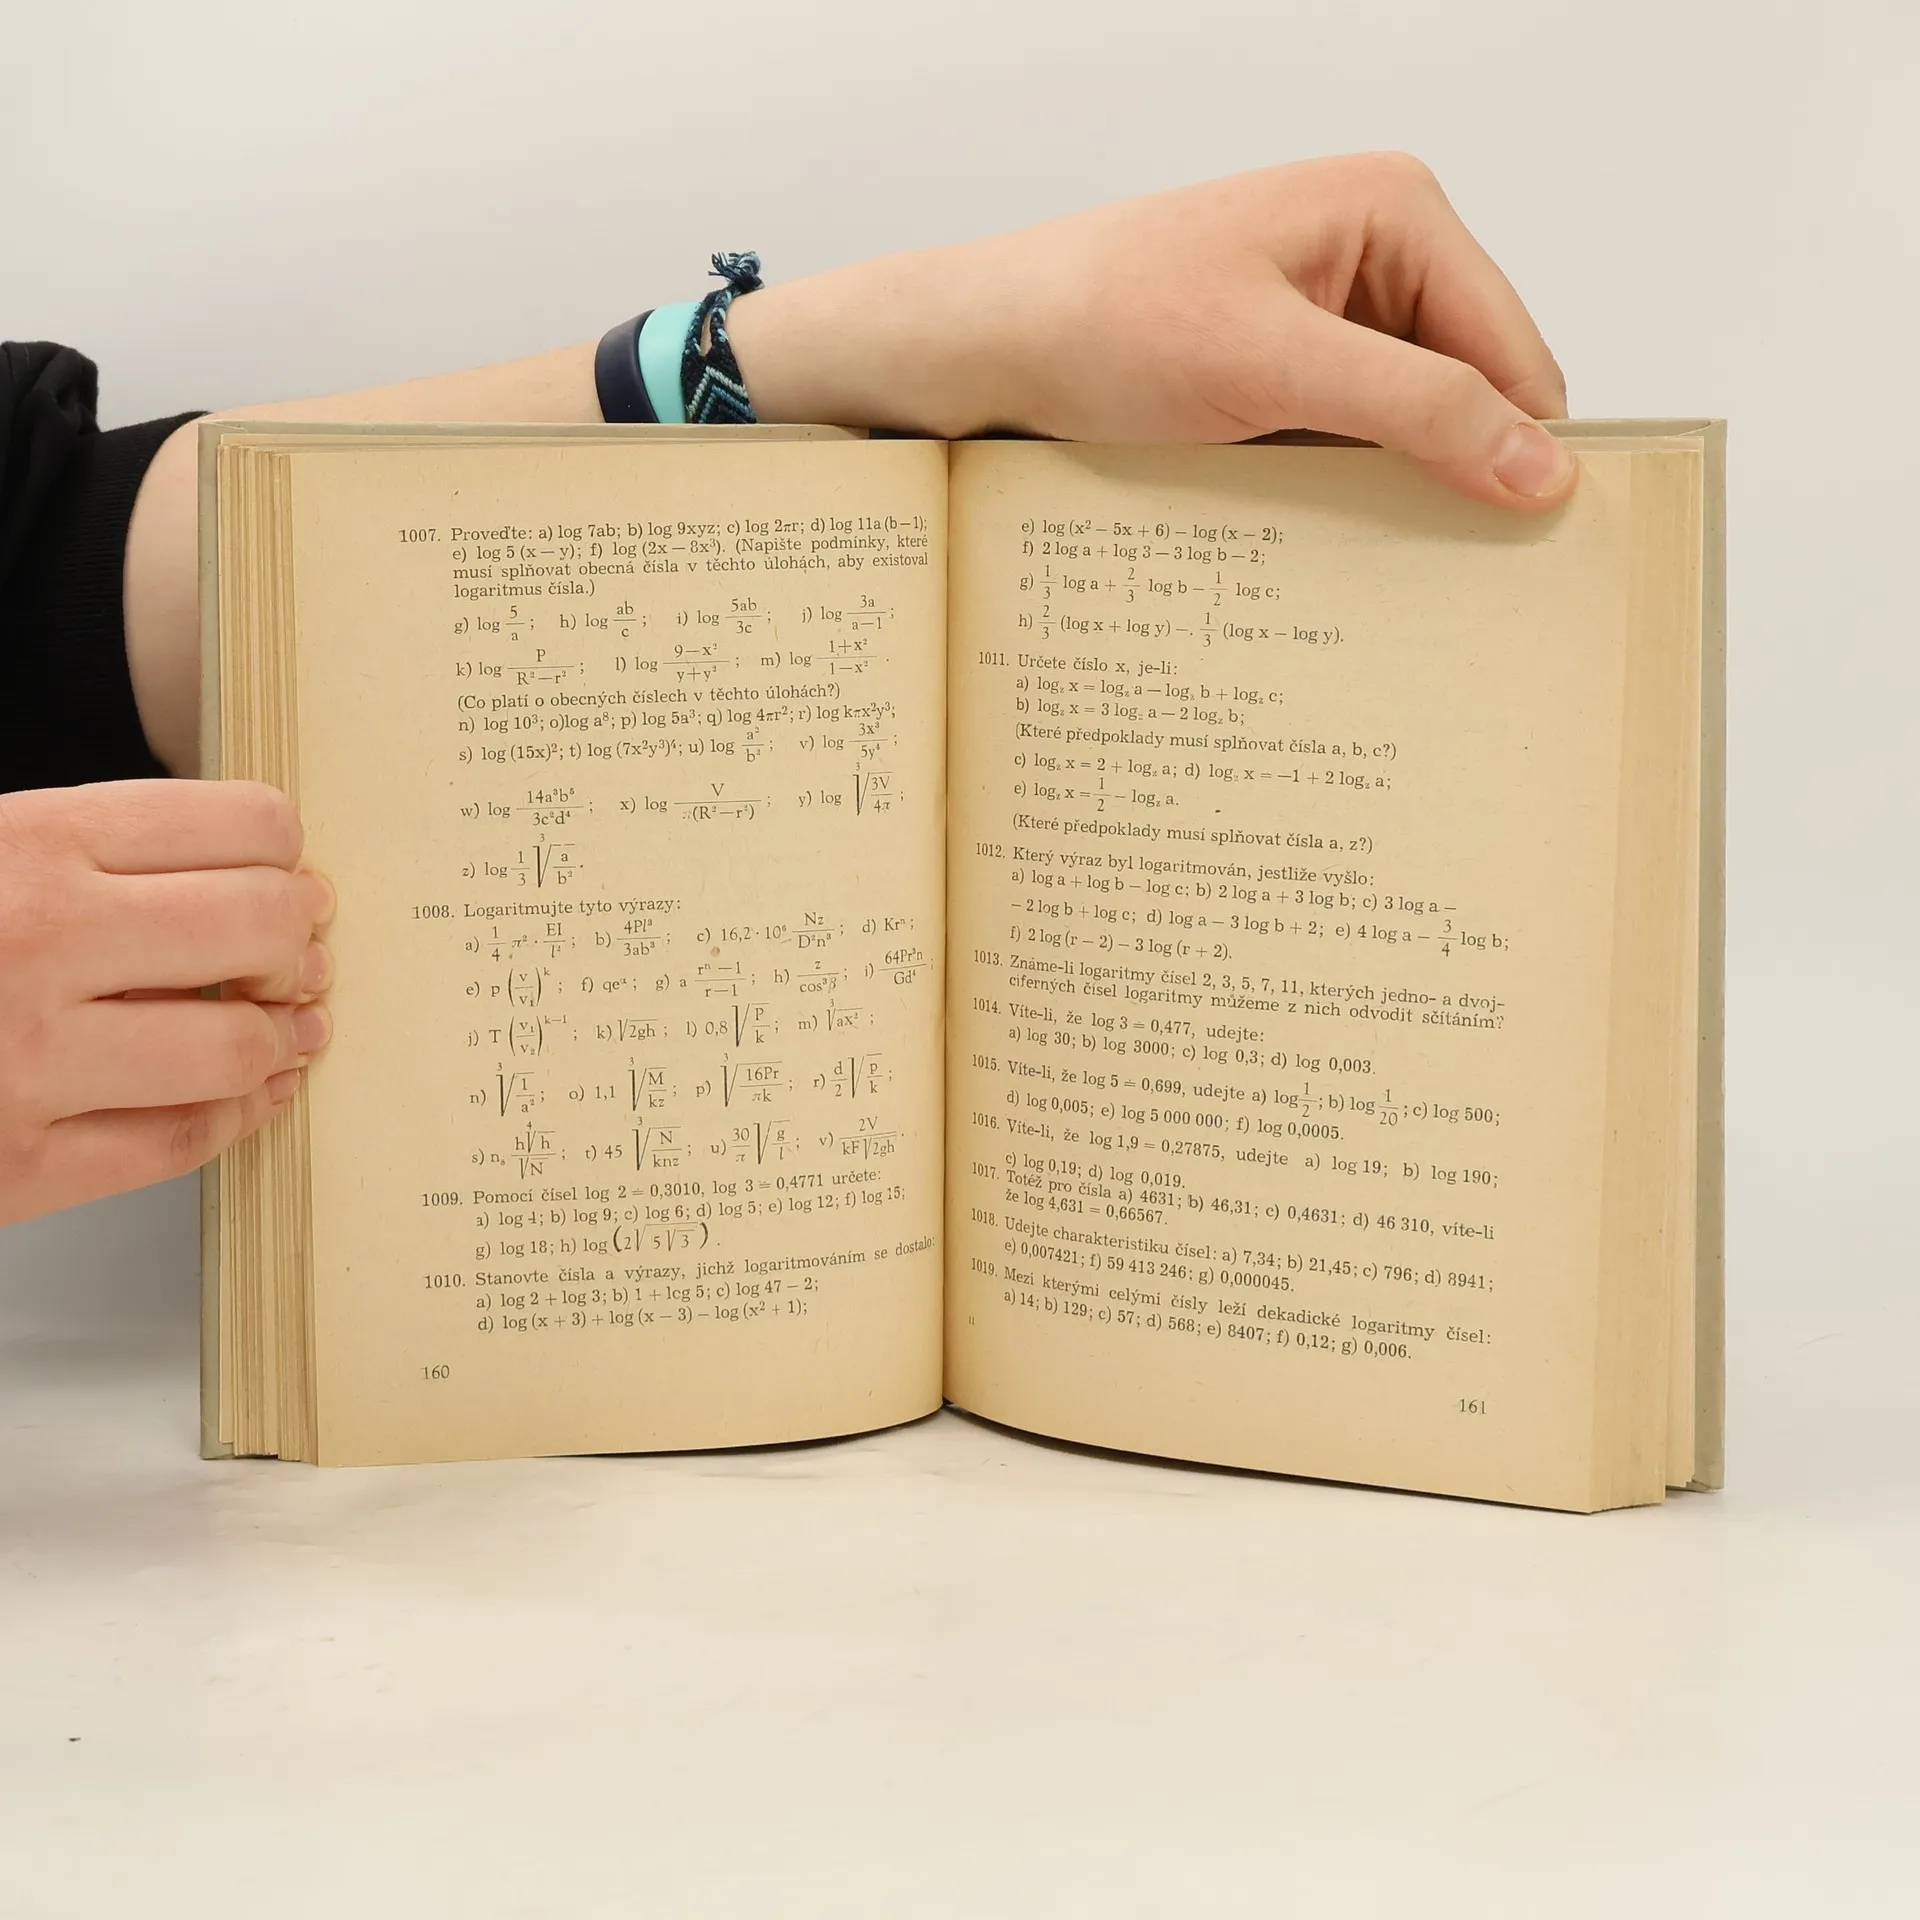 1007. Proveďte: a) log 7ab; b) log 9xyz; c) log 2πr; d) log 11a (b−1);
e) log 5 (x − y); f) log (2x − 8x³). (Napište podmínky, které
musí splňovat obecná čísla v těchto úlohách, aby existoval
logaritmus čísla.)
g) log 5/a; h) log ab/c; i) log 5ab/3c; j) log 3a/(a−1);
k) log P/(R²−r²); l) log (9−x²)/(y+y²); m) log (1+x²)/(1−x²).
(Co platí o obecných číslech v těchto úlohách?)
n) log 10³; o)log a⁸; p) log 5a³; q) log 4πr²; r) log kπx²y³;
s) log (15x)²; t) log (7x²y³)⁴; u) log a²/b²; v) log 3x³/5y⁴;
w) log 14a³b⁵/3c²d⁴; x) log V/π(R²−r²); y) log ³√(3V/4π);
z) log 1/3 ³√(a/b²).
1008. Logaritmujte tyto výrazy:
a) 1/4 π² · EI/l²; b) 4Pl³/3ab³; c) 16,2 · 10⁶ Nz/D²n³; d) Krⁿ;
e) p (v/v₁)ᵏ; f) qeᵅ; g) a (rⁿ−1)/(r−1); h) z/cos³β; i) 64Pr³n/Gd⁴;
j) T (v₁/v₂)ᵏ⁻¹; k) √(2gh); l) 0,8 √(P/k); m) ³√(ax²);
n) ³√(1/a²); o) 1,1 ³√(M/kz); p) ³√(16Pr/πk); r) d/2 √(p/k);
s) nₛ h⁴√h/√N; t) 45 ³√(N/knz); u) 30/π √(g/l); v) 2V/kF√(2gh).
1009. Pomocí čísel log 2 ≐ 0,3010, log 3 ≐ 0,4771 určete:
a) log 4; b) log 9; c) log 6; d) log 5; e) log 12; f) log 15;
g) log 18; h) log (2√(5√3)).
1010. Stanovte čísla a výrazy, jichž logaritmováním se dostalo:
a) log 2 + log 3; b) 1 + log 5; c) log 47 − 2;
d) log (x + 3) + log (x − 3) − log (x² + 1);
160
e) log (x² − 5x + 6) − log (x − 2);
f) 2 log a + log 3 − 3 log b − 2;
g) 1/3 log a + 2/3 log b − 1/2 log c;
h) 2/3 (log x + log y) − 1/3 (log x − log y).
1011. Určete číslo x, je-li:
a) log_z x = log_z a − log_z b + log_z c;
b) log_z x = 3 log_z a − 2 log_z b;
(Které předpoklady musí splňovat čísla a, b, c?)
c) log_z x = 2 + log_z a; d) log_z x = −1 + 2 log_z a;
e) log_z x = 1/2 − log_z a.
(Které předpoklady musí splňovat čísla a, z?)
1012. Který výraz byl logaritmován, jestliže vyšlo:
a) log a + log b − log c; b) 2 log a + 3 log b; c) 3 log a −
− 2 log b + log c; d) log a − 3 log b + 2; e) 4 log a − 3/4 log b;
f) 2 log (r − 2) − 3 log (r + 2).
1013. Známe-li logaritmy čísel 2, 3, 5, 7, 11, kterých jedno- a dvoj-
ciferných čísel logaritmy můžeme z nich odvodit sčítáním?
1014. Víte-li, že log 3 = 0,477, udejte:
a) log 30; b) log 3000; c) log 0,3; d) log 0,003.
1015. Víte-li, že log 5 ≐ 0,699, udejte a) log 1/2; b) log 1/20; c) log 500;
d) log 0,005; e) log 5 000 000; f) log 0,0005.
1016. Víte-li, že log 1,9 = 0,27875, udejte a) log 19; b) log 190;
c) log 0,19; d) log 0,019.
1017. Totéž pro čísla a) 4631; b) 46,31; c) 0,4631; d) 46 310, víte-li
že log 4,631 = 0,66567.
1018. Udejte charakteristiku čísel: a) 7,34; b) 21,45; c) 796; d) 8941;
e) 0,007421; f) 59 413 246; g) 0,000045.
1019. Mezi kterými celými čísly leží dekadické logaritmy čísel:
a) 14; b) 129; c) 57; d) 568; e) 8407; f) 0,12; g) 0,006.
11
161